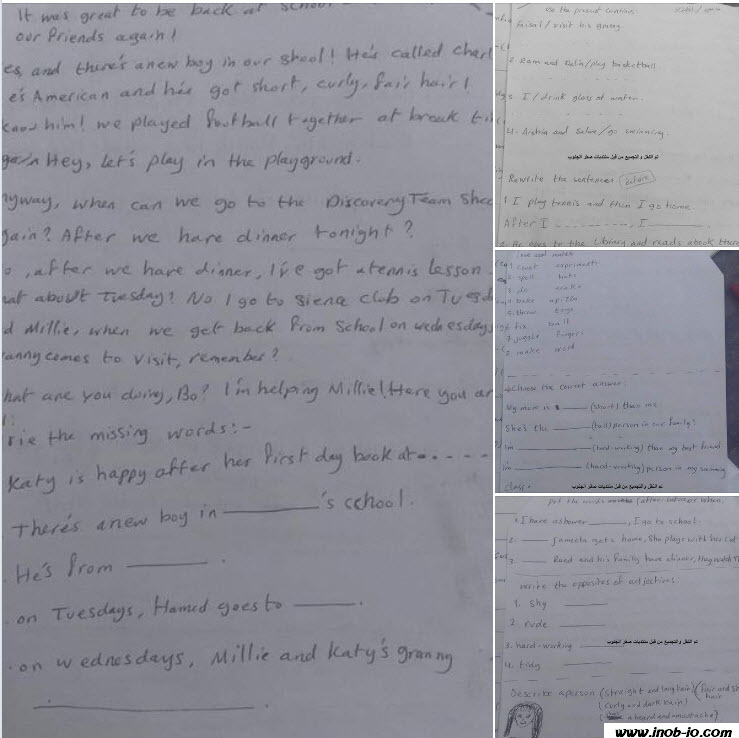 It was great to be back at school
our friends again!
es, and there's a new boy in our shool! He's called charl
e's American and he's got short, curly, fair hair!
know him! we played football together at break ti
again Hey, let's play in the playground.
nyway, when can we go to the Discoreny Team She
gain? After we hare dinner tonight?
o, after we hare dinner, I've got a tennis lesson.
hat about Tuesday? No I go to sience club on Tuesd
d Millie, when we get back from School on wednesdays
ranny comes to visit, remember?
hat are you doing, Bo? I'm helping Millie! Here you ar
rie the missing words:-
Katy is happy after her first day back at
There's a new boy in ______'s school.
He's from ______.
on Tuesdays, Hamed goes to ______.
on wednesdays, Millie and Katy's granny
______.
Use the present
Faisal / visit his granny
2. Reem and Dalia / play basketball
3. I / drink glass of water.
4. and Salwa / go swimming
تم النقل والتجميع من قبل منتديات صقر الجنوب
Rewrite the sentences (before)
1. I play tennis and then I go home.
After I ______, I ______
2. He goes to the Library and reads a book there
and match
experiment
2. spell
3. do
4. bake a pizza
5. throw
6. fix ball
7. juggle fingers
8. make word
Choose the correct answer:
My mum is ______ (short) than me
She's the ______ (tall) person in our family?
I'm ______ (hard-working) than my best friend
I'm ______ (hard-working) person in my swimming
class.
تم النقل والتجميع من قبل منتديات صقر الجنوب
put the words (after - before - when.
1. I have a shower ______, I go to school.
2. ______ Jameela gets home, She plays with her cat
3. ______ Raed and his family have dinner, they watch T
write the opposites of adjectives.
1. shy ______
2. rude ______
3. hard-working ______
تم النقل والتجميع من قبل منتديات صقر الجنوب
4. tidy ______
Describe a person (straight and long hair) (fair and sh
hair
(curly and dark hair)
(a beard and a moustache)
www.inob-jo.com